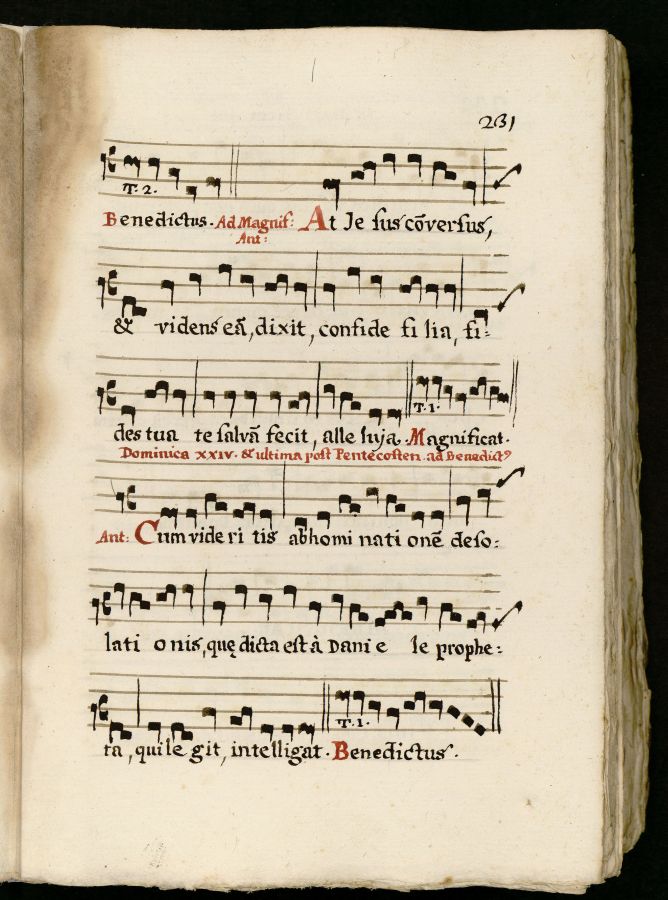 231
T. 2.
Benedictus. Ad Magnif: At Je sus cōversus,
Ant:
& videns eā, dixit, confide fi lia, fi=
T. 1.
des tua te salvā fecit, alle luja. Magnificat.
Dominica XXIV. & ultima post Pentecosten. ad Benedict⁹
Ant: Cum vide ri tis abhomi nati onē deso=
lati onis, quę dicta est à Dani e le prophe=
T. 1.
ta, qui le git, intelligat. Benedictus.